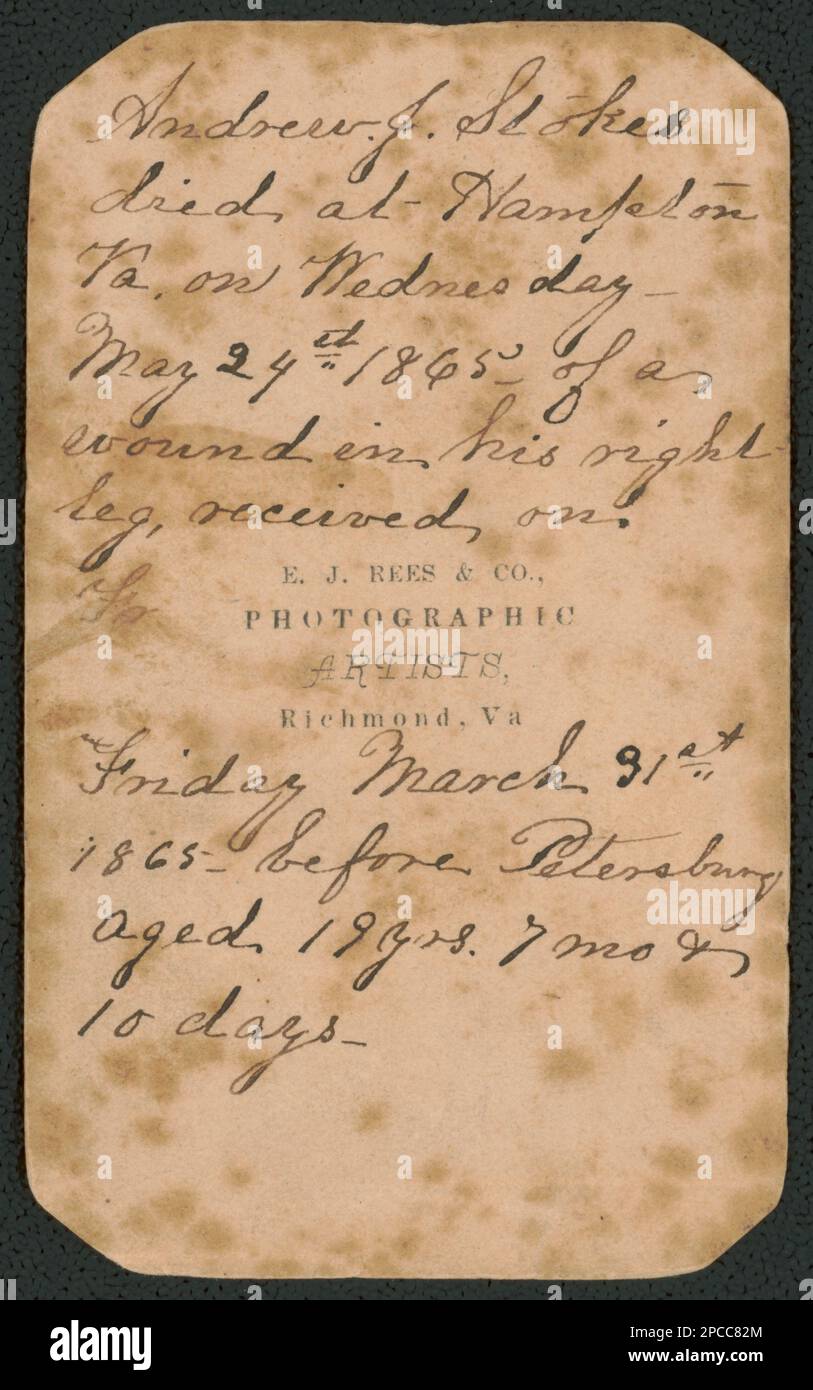 Andrew. J. Stokes
died, at Hampton
Va. on Wednesday
May 24st 1865 of a
wound in his right
leg, received, on.
E. J. REES & CO.,
Fr
PHOTOGRAPHIC
ARTISTS,
Richmond, Va
Friday March 31st
1865 before Petersburg
aged 19 yrs. 7 mo &
10 days
alamy
Image ID: 2PCC82M
www.alamy.com